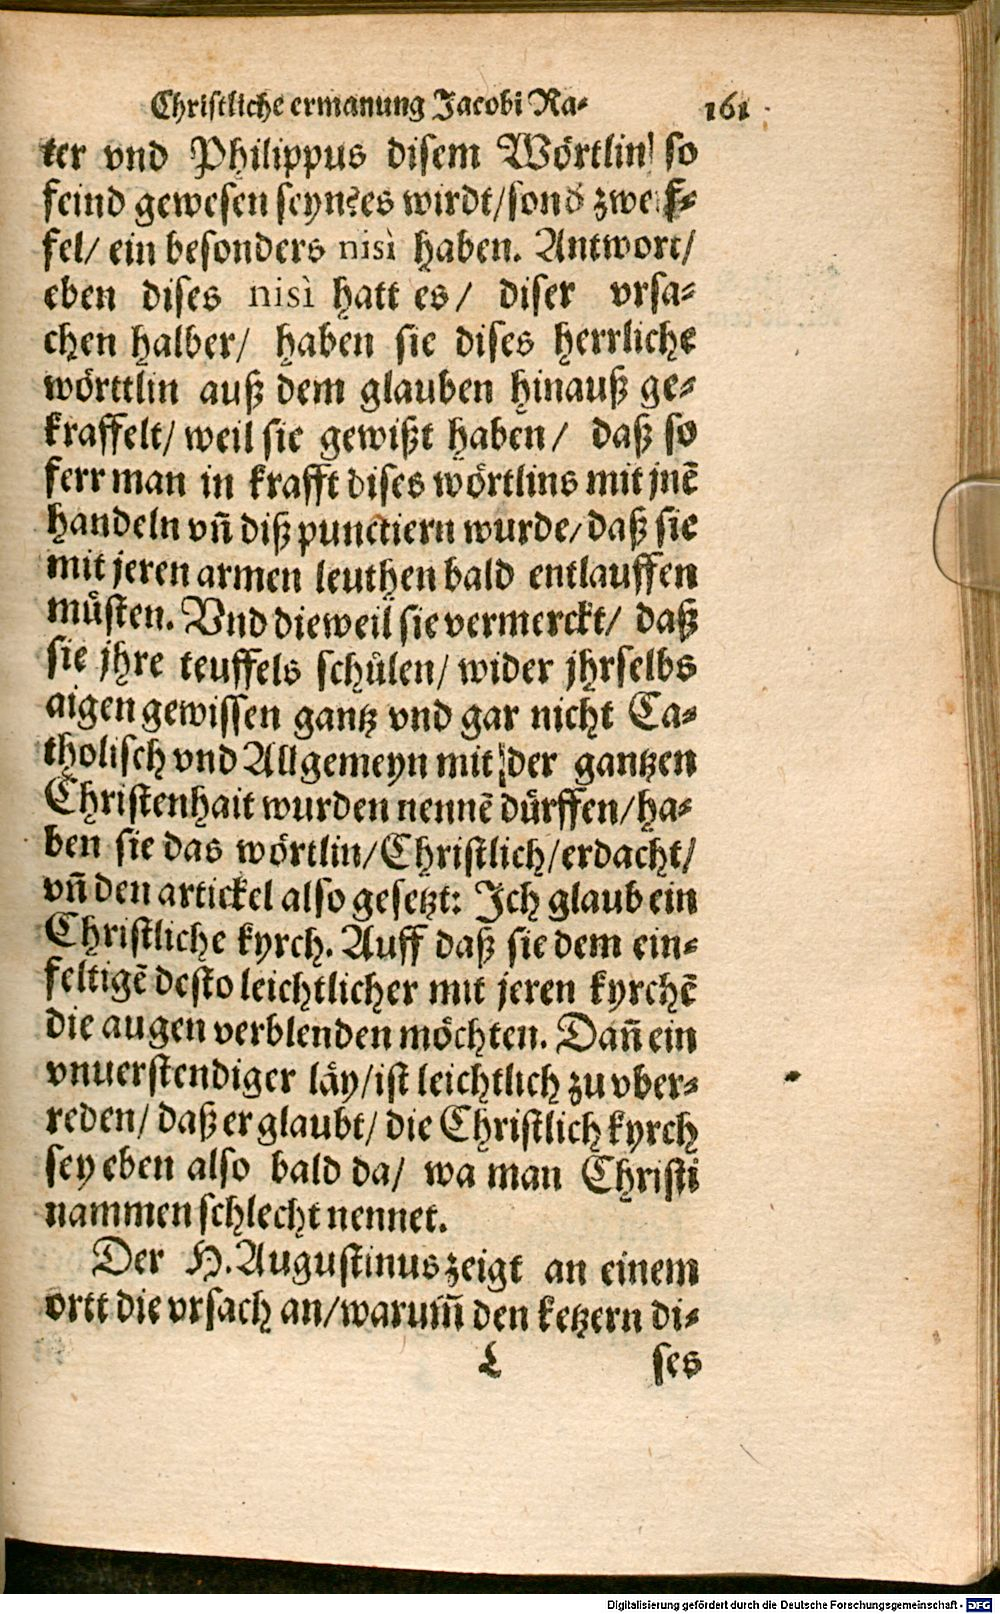 Christliche ermanung Jacobi Ra⸗ 161
ter vnd Philippus disem Wörtlin so
feind gewesen seyn? es wirdt/ sond zweif⸗
fel/ ein besonders nisì haben. Antwort/
eben dises nisì hatt es/ diser vrsa⸗
chen halber/ haben sie dises herrliche
wörttlin auß dem glauben hinauß ge⸗
kraffelt/ weil sie gewißt haben/ daß so
ferr man in krafft dises wörtlins mit jnē
handeln vñ diß punctiern wurde/ daß sie
mit jeren armen leuthen bald entlauffen
müsten. Vnd dieweil sie vermerckt/ daß
sie jhre teuffels schůlen/ wider jhrselbs
aigen gewissen gantz vnd gar nicht Ca⸗
tholisch vnd Allgemeyn mit der gantzen
Christenhait wurden nennē dürffen/ ha⸗
ben sie das wörtlin/ Christlich/ erdacht/
vñ den artickel also gesetzt: Ich glaub ein
Christliche kyrch. Auff daß sie dem ein⸗
feltigē desto leichtlicher mit jeren kyrchē
die augen verblenden möchten. Dañ ein
vnuerstendiger läy/ ist leichtlich zu vber⸗
reden/ daß er glaubt/ die Christlich kyrch
sey eben also bald da/ wa man Christi
nammen schlecht nennet.
Der H. Augustinus zeigt an einem
ortt die vrsach an/ warum̃ den ketzern di⸗
L ses
Digitalisierung gefördert durch die Deutsche Forschungsgemeinschaft - DFG